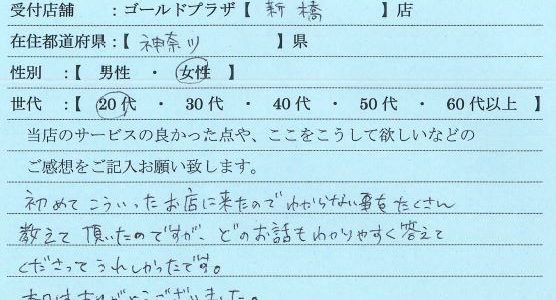 受付店舗 :ゴールドプラザ【 新橋 】店
在住都道府県:【 神奈川 】県
性別 :【 男性 ・ 女性 】
世代 :【 20代 ・ 30代 ・ 40代 ・ 50代 ・ 60代以上 】
当店のサービスの良かった点や、ここをこうして欲しいなどの
ご感想をご記入お願い致します。
初めてこういったお店に来たのでわからない事をたくさん
教えて頂いたのですが、どのお話もわかりやすく答えて
くださってうれしかったです。
本日はありがとうございました。